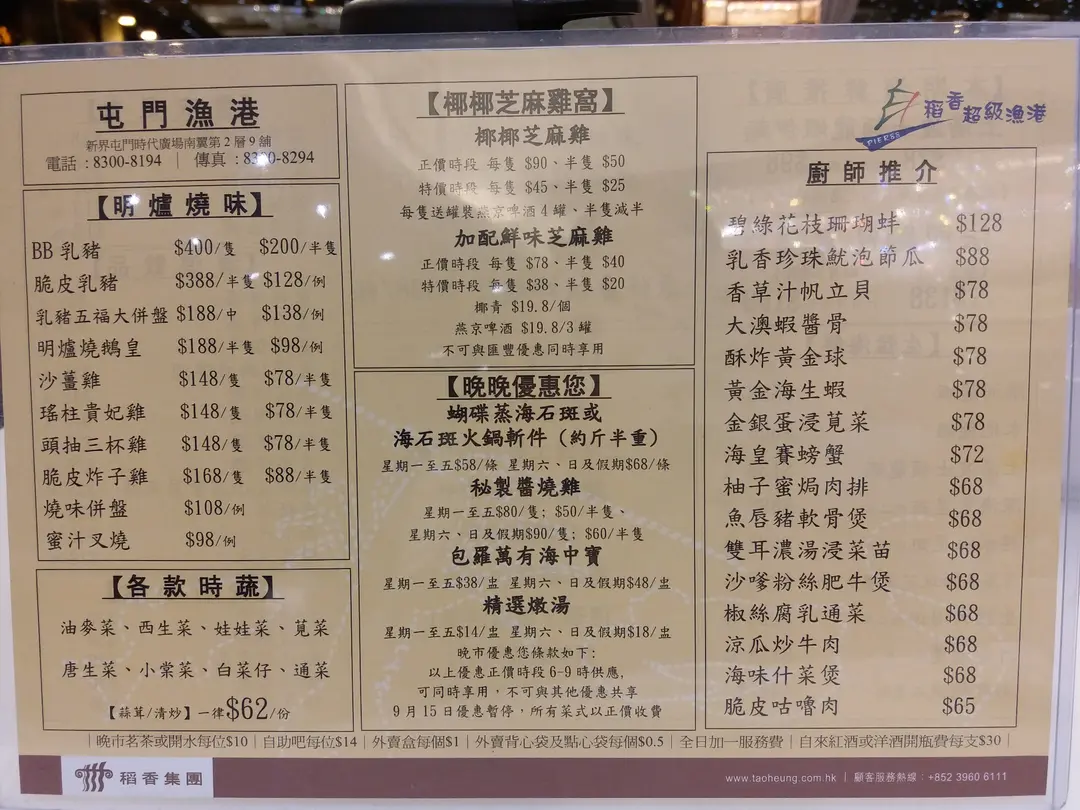 屯門漁港
新界屯門時代廣場南翼第2層9舖
電話：8300-8194 ｜ 傳真：8300-8294
【明爐燒味】
BB乳豬 $400/隻 $200/半隻
脆皮乳豬 $388/半隻 $128/例
乳豬五福大併盤 $188/中 $138/例
明爐燒鵝皇 $188/半隻 $98/例
沙薑雞 $148/隻 $78/半隻
瑤柱貴妃雞 $148/隻 $78/半隻
頭抽三杯雞 $148/隻 $78/半隻
脆皮炸子雞 $168/隻 $88/半隻
燒味併盤 $108/例
蜜汁叉燒 $98/例
【各款時蔬】
油麥菜、西生菜、娃娃菜、莧菜
唐生菜、小棠菜、白菜仔、通菜
【蒜茸/清炒】一律$62/份
【椰椰芝麻雞窩】
椰椰芝麻雞
正價時段 每隻 $90、半隻 $50
特價時段 每隻 $45、半隻 $25
每隻送罐裝燕京啤酒4罐、半隻減半
加配鮮味芝麻雞
正價時段 每隻 $78、半隻 $40
特價時段 每隻 $38、半隻 $20
椰青 $19.8/個
燕京啤酒 $19.8/3罐
不可與匯豐優惠同時享用
【晚晚優惠您】
蝴蝶蒸海石斑或
海石斑火鍋斬件（約斤半重）
星期一至五$58/條 星期六、日及假期$68/條
秘製醬燒雞
星期一至五$80/隻; $50/半隻、
星期六、日及假期$90/隻; $60/半隻
包羅萬有海中寶
星期一至五$38/盅 星期六、日及假期$48/盅
精選燉湯
星期一至五$14/盅 星期六、日及假期$18/盅
晚市優惠您條款如下:
以上優惠正價時段6-9時供應,
可同時享用，不可與其他優惠共享
9月15日優惠暫停，所有菜式以正價收費
稻香超級漁港
PIER88
廚師推介
碧綠花枝珊瑚蚌 $128
乳香珍珠魷泡節瓜 $88
香草汁帆立貝 $78
大澳蝦醬骨 $78
酥炸黃金球 $78
黃金海生蝦 $78
金銀蛋浸莧菜 $78
海皇賽螃蟹 $72
柚子蜜焗肉排 $68
魚唇豬軟骨煲 $68
雙耳濃湯浸菜苗 $68
沙嗲粉絲肥牛煲 $68
椒絲腐乳通菜 $68
涼瓜炒牛肉 $68
海味什菜煲 $68
脆皮咕嚕肉 $65
｜晚市茗茶或開水每位$10｜自助吧每位$14｜外賣盒每個$1｜外賣背心袋及點心袋每個$0.5｜全日加一服務費｜自來紅酒或洋酒開瓶費每支$30｜
稻香集團
www.taoheung.com.hk ｜ 顧客服務熱線：+852 3960 6111